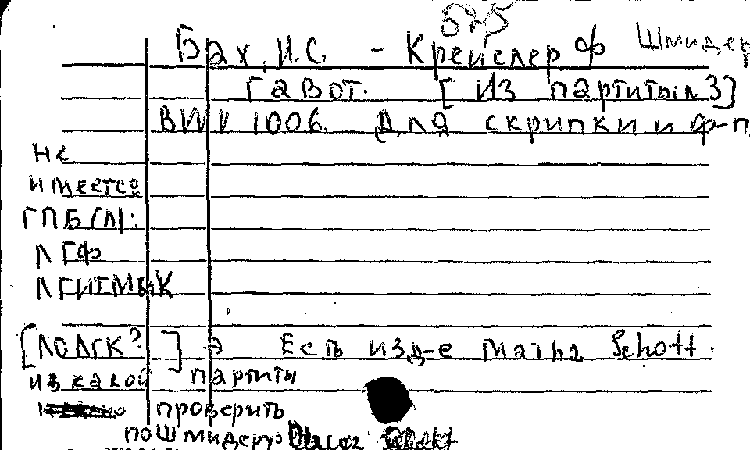 525
Бах, И.С. - Крейслер Ф Шмидер
Гавот. [ Из партиты №3]
BWV 1006. Для скрипки и ф-п
не
имеется
ГПБ(Л):
ЛГФ
ЛГИТМиК
[ЛОЛГК?] Э Есть изд-е Mainz Schott
из какой партиты
проверить
по Шмидеру: